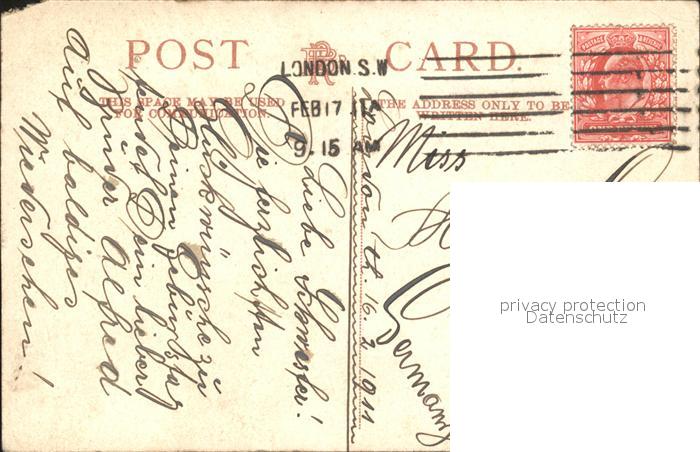 POST CARD.
THIS SPACE MAY BE USED
FOR COMMUNICATION.
THE ADDRESS ONLY TO BE
WRITTEN HERE.
LONDON. S.W
FEB 17 11
9. 15 AM
POSTAGE & REVENUE
Miss
Germany
London, d. 16. 2. 1911
Liebe Schwester!
Die herzlichsten
Glückwünsche zu
Deinem Geburtstag
sendet Dein lieber
Bruder Alfred
Auf baldiges
Wiedersehen!
privacy protection
Datenschutz